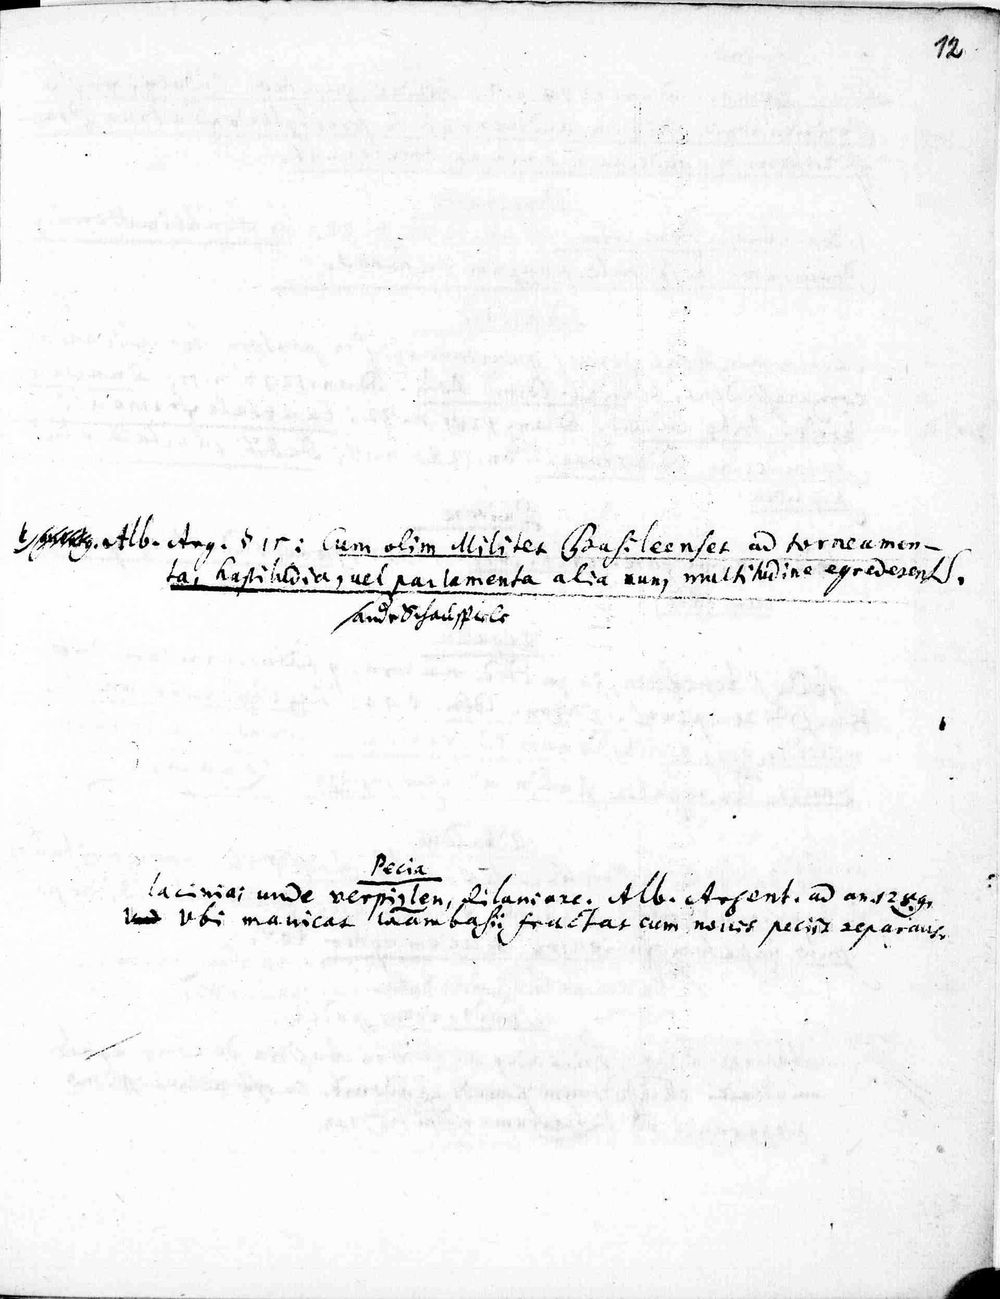 12
Alb. Arg. § 15: Cum olim Milites Basileenses ad torneamen-
ta, hastiludia, vel parlamenta alia cum multitudine egrederent.
andr Schauspiele
Pecia
lacinia; unde verpizlen, dilaniare. Alb. Argent. ad an. 1289.
Vbi manicas wambasij fractas cum novis peciis reparaus.